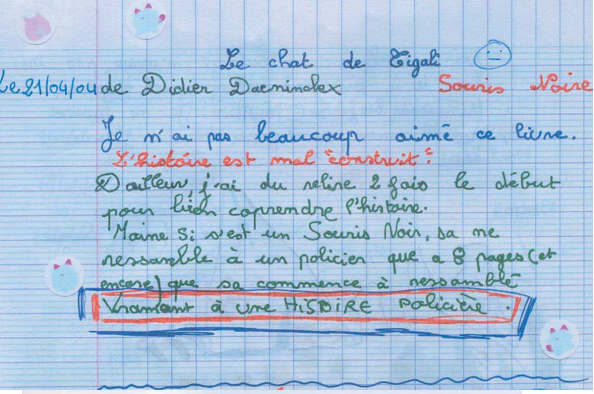 Le chat de Tigali
Le 21/04/04 de Didier Daeninckx Souris Noire
Je n'ai pas beaucoup aimé ce livre.
L'histoire est mal "construit".
D'ailleur, j'ai du relire 2 fois le début
pour bien coprendre l'histoire.
Maime si s'est un Souris Noir, sa me
ressamble à un policier que a 8 pages (et
encore) que sa commence à ressamblé
Vraiment à une HISTOIRE Policière.